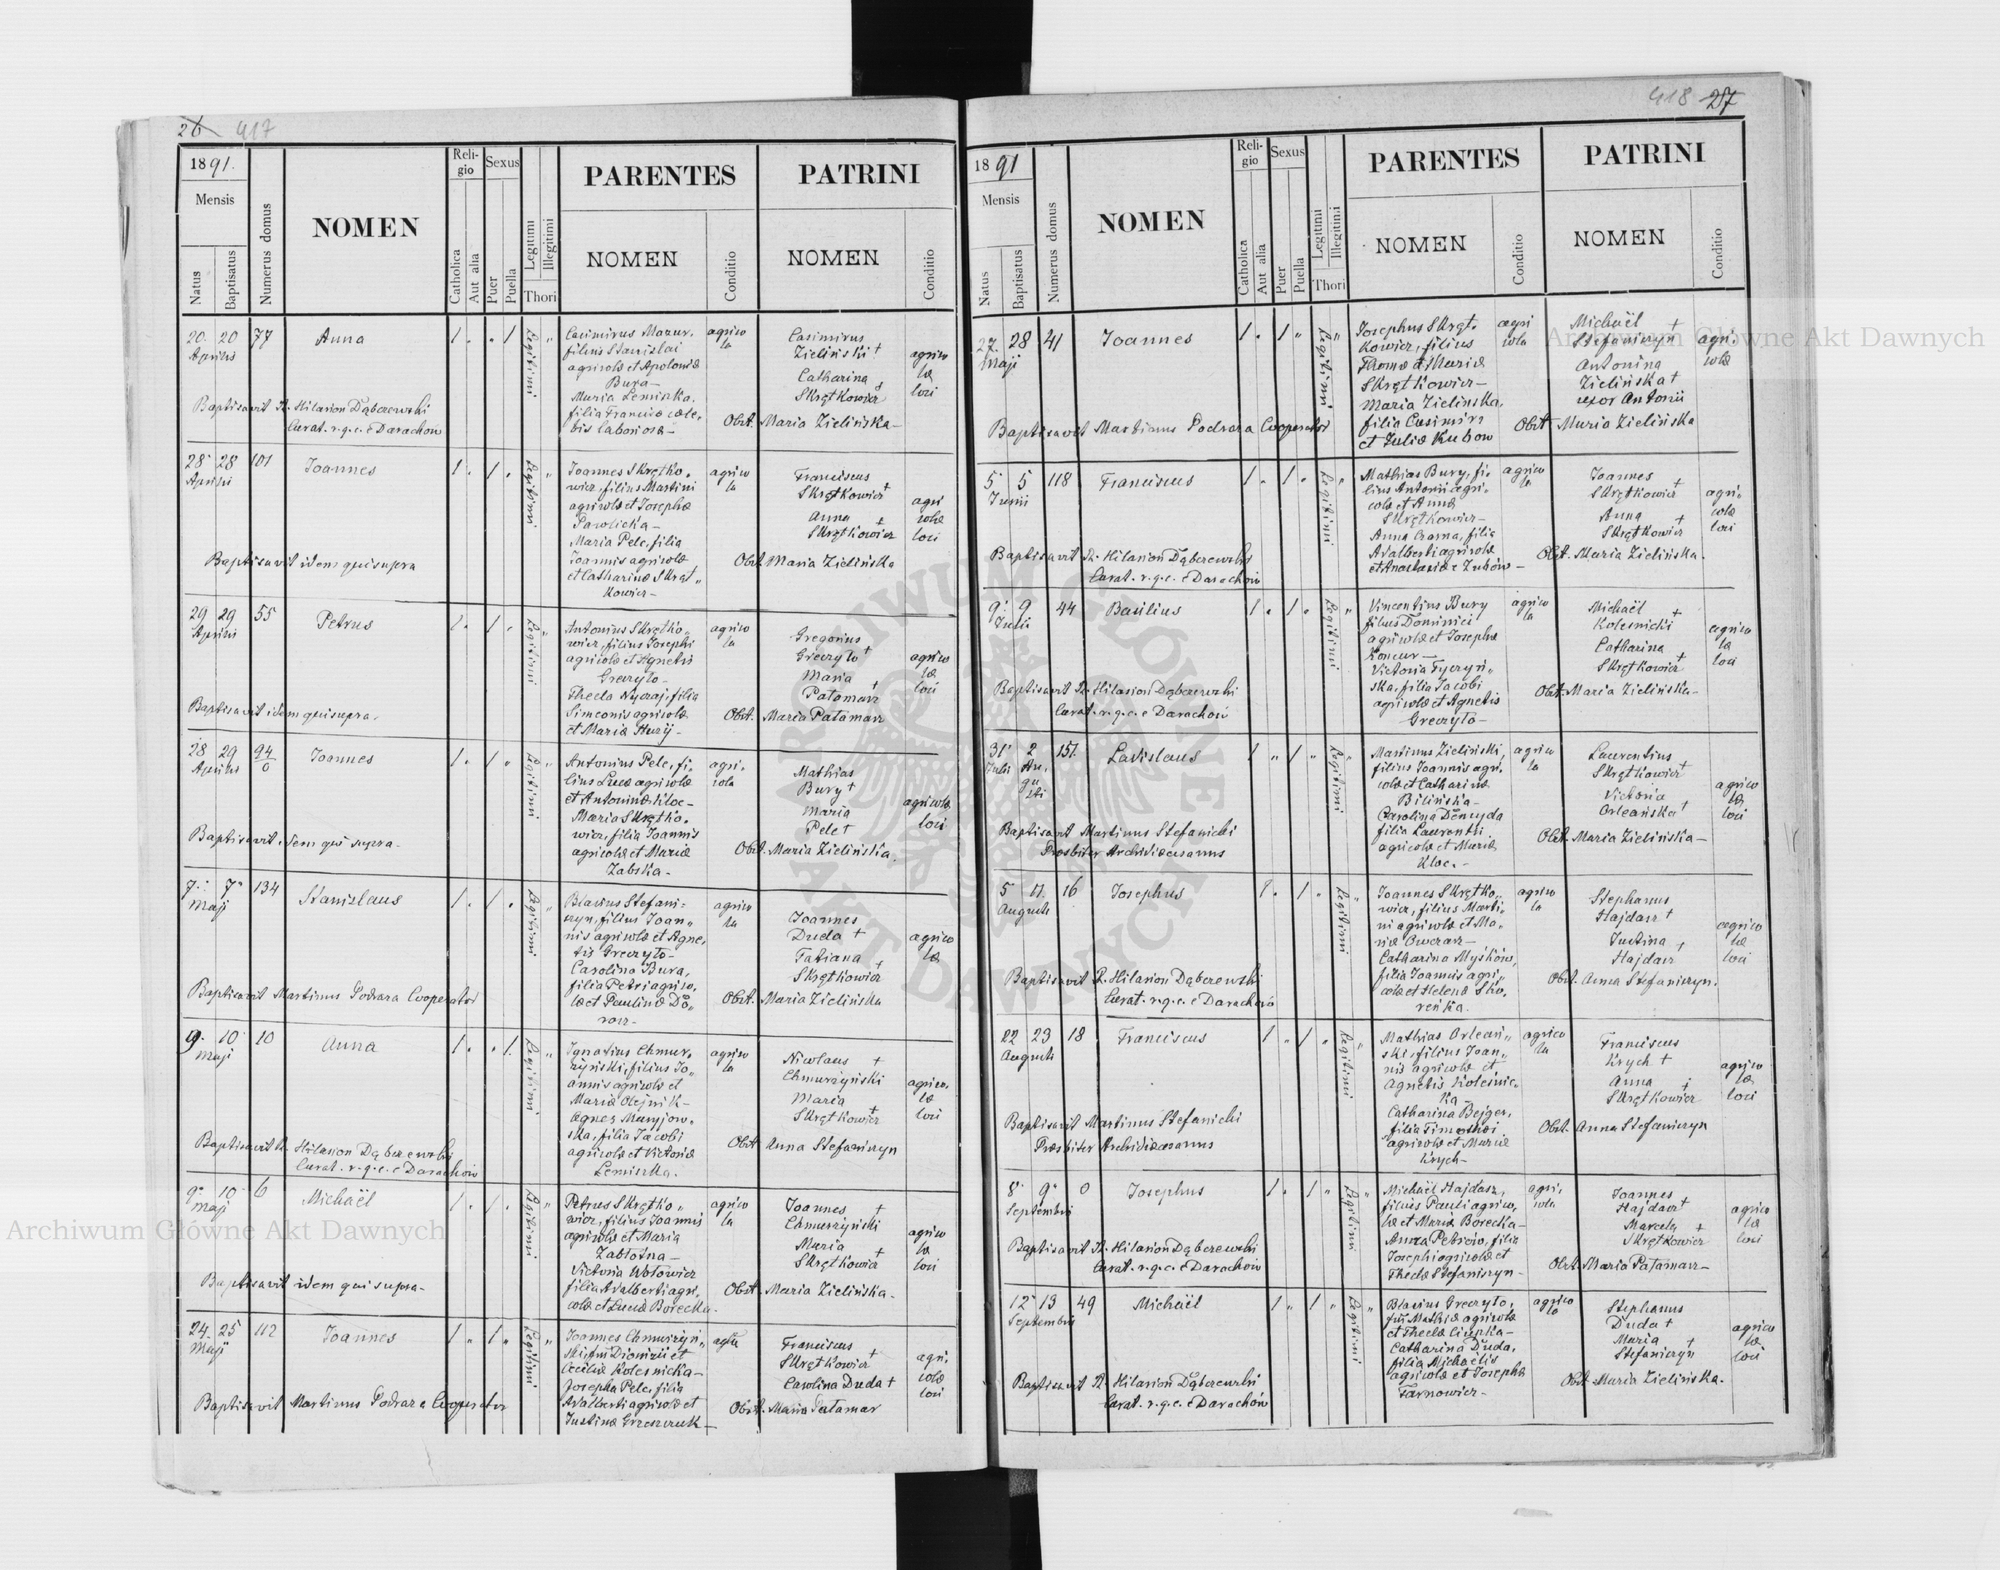 26 417
1891.
Mensis
Natus
Baptisatus
Numerus domus
NOMEN
Religio
Catholica
Aut alia
Sexus
Puer
Puella
Legitimi
Illegitimi
Thori
PARENTES
NOMEN
Conditio
PATRINI
NOMEN
Conditio
20 20 77 Anna 1 1 Legitimi
Aprilis
Casimirus Mazur,
filius Stanislai
agricolæ et Apoloniæ
Bura—
Maria Lemiszka,
filia Francisc
agrico
la
Casimirus
Zieliński †
Catharina
Skrętkowicz
agrico
læ
loci
Baptisavit R. Hilarion Dąbczewski
Curat. r. g. c. e Darachów
Obst. Maria Zielińska—
28 28 101 Joannes 1 1 Legitimi
Aprilis
Joannes Skrętko-
wicz, filius Martini
agricolæ et Josephæ
Pawlicka—
Maria Pelc, filia
Joannis agricolæ
et Catharinæ Skręt-
kowicz—
agrico
la
Franciscus
Skrętkowicz †
Anna †
Skrętkowicz
agri
colæ
loci
Baptisavit idem qui supra
Obst. Maria Zielińska
29 29 55 Petrus 1 1 Legitimi
Aprilis
Antonius Skrętko-
wicz, filius Josephi
agricolæ et Agnetis
Greczyło—
Thecla Nyczaj, filia
Simeonis agricolæ
et Mariæ Huzij—
agrico
la
Gregorius
Greczyło †
Maria †
Patamarz
agrico
læ
loci
Baptisavit idem qui supra.
Obst. Maria Patamarz
28 29 94/0 Joannes 1 1 Legitimi
Aprilis
Antonius Pelc, fi-
lius Lucæ agricolæ
et Antoninæ Kloc—
Maria Skrętko-
wicz, filia Joannis
agricolæ et Mariæ
Zabska—
agri-
cola
Mathias
Bury †
Maria
Pelc †
agricolæ
loci
Baptisavit idem qui supra—
Obst. Maria Zielińska.
7 7 134 Stanislaus 1 1 Legitimi
Maji
Blasius Stefani-
szyn, filius Joan-
nis agricolæ et Agne-
tis Greczyło—
Carolina Bura,
filia Petri agrico-
læ et Paulinæ
agrico
la
Joannes
Duda †
Tatiana †
Skrętkowicz
agrico
læ
Baptisavit Martinus Podraza Cooperator
Obst. Maria Zielińska
9. 10 10 Anna 1 1 Legitimi
Maji
Ignatius Chmur-
zyński, filius Jo-
annis agricolæ et
Mariæ Olejnik—
Agnes Maryjow-
ska, filia Jacobi
agricolæ et Victoriæ
Lemiszka.
agrico
la
Nicolaus †
Chmurzyński
Maria
Skrętkowicz †
agrico-
læ
loci
Baptisavit R. Hilarion Dąbczewski
Curat. r. g. c. e Darachów
Obst. Anna Stefaniszyn
9 10 6 Michaël 1 1 Legitimi
Maji
Petrus Skrętko-
wicz, filius Joannis
agricolæ et Maria
Zabłotna—
Victoria Wołowicz
filia Adalberti agri-
colæ et Luciæ Borecka.
agrico
la
Joannes †
Chmurzyński
Maria †
Skrętkowicz
agrico
læ
loci
Baptisavit idem qui supra—
Obst. Maria Zielińska.
24. 25 112 Joannes 1 1 Legitimi
Maji
Joannes Chmurzyń-
ski, fil Dionizii et
Ceciliæ Kolesnicka—
Josepha Pelc, filia
Adalberti agricolæ et
Justinæ Grzeszczuk—
Franciscus
Skrętkowicz †
Carolina Duda †
agri-
colæ
loci
Baptisavit Martinus Podraza Cooperator
Obst. Maria Patamar
418 27
1891
Mensis
Natus
Baptisatus
Numerus domus
NOMEN
Religio
Catholica
Aut alia
Sexus
Puer
Puella
Legitimi
Illegitimi
Thori
PARENTES
NOMEN
Conditio
PATRINI
NOMEN
Conditio
27. 28 41 Joannes 1 1 Legitimi
Maji
Josephus Skręt-
kowicz, filius
Thomæ et Mariæ
Skrętkowicz—
Maria Zielinska,
filia Casimiri
et Juliæ Kubow
agri
cola
Michaël †
Stefaniszyn
Antonina
Zielińska †
uxor Antonii
agri-
colæ
Baptisavit Martinus Podraza Cooperator
Obst. Maria Zielińska
5 5 118 Franciscus 1 1 Legitimi
Junii
Mathias Bury, fi-
lius Antonii agri-
colæ et Annæ
Skrętkowicz—
Anna Czarna, filia
Adalberti agricolæ
et Anastasiæ Zubów—
agrico
la
Joannes †
Skrętkowicz
Anna †
Skrętkowicz
agri-
colæ
loci
Baptisavit R. Hilarion Dąbczewski
Curat. r. g. c. e Darachów
Obst. Maria Zielińska.
9 9 44 Basilius 1 1 Legitimi
Julii
Vincentius Bury
filius Dominici
agricolæ et Josephæ
Koncur—
Victoria Tyczyń-
ska, filia Jacobi
agricolæ et Agnetis
Greczyło—
agrico
la
Michaël †
Kolesnicki
Catharina †
Skrętkowicz
agrico
læ
loci
Baptisavit R. Hilarion Dąbczewski
Curat. r. g. c. e Darachów
Obst. Maria Zielińska—
31 2 151 Ladislaus 1 1 Legitimi
Julii Au-
gu
sti
Martinus Zieliński,
filius Joannis agri-
colæ et Catharinæ
Bilińska—
Carolina Demyda
filia Laurentii
agricolæ et Mariæ
Kloc.—
agrico
la
Laurentius
Skrętkowicz †
Victoria
Orleańska †
agrico
læ
loci
Baptisavit Martinus Stefanicki
Præsbiter Archidiæcesanus
Obst. Maria Zielińska—
5 11 16 Josephus 1 1 Legitimi
Augusti
Joannes Skrętko-
wicz, filius Marti-
ni agricolæ et Ma-
riæ Owczarz—
Catharina Myśków,
filia Joannis agri-
colæ et Helenæ Sko-
reńka.
agrico
la
Stephanus
Hajdasz †
Justina †
Hajdasz
agrico
læ
loci
Baptisavit R. Hilarion Dąbczewski
Curat. r. g. c. e Darachów
Obst. Anna Stefaniszyn.
22 23 18 Franciscus 1 1 Legitimi
Augusti
Mathias Orleań-
ski, filius Joan-
nis agricolæ et
Agnetis Koleśnic-
ka—
Catharina Bejger,
filia Timothei
agricolæ et Mariæ
Krych—
agrico
la
Franciscus
Krych †
Anna †
Skrętkowicz
agrico
læ
loci
Baptisavit Martinus Stefanicki
Præsbiter Archidiæcesanus
Obst. Anna Stefaniszyn
8 9 0 Josephus 1 1 Legitimi
Septembri
Michaël Hajdasz,
filius Pauli agrico-
læ et Mariæ Borecka—
Anna Petrów, filia
Josephi agricolæ et
Theclæ Stefaniszyn—
agri-
cola
Joannes
Hajdasz †
Marcela †
Skrętkowicz
agrico
læ
loci
Baptisavit R. Hilarion Dąbczewski
Curat. r. g. c. e Darachów
Obst. Maria Patamarz—
12 13 49 Michaël 1 1 Legitimi
Septembri
Blasius Greczyło,
fil Mathiæ agricolæ
et Theclæ Ciupka—
Catharina Duda,
filia Michaelis
agricolæ et Josephæ
Tarnowicz—
agrico
la
Stephanus
Duda †
Maria †
Stefaniszyn
agrico
læ
loci
Baptisavit R. Hilarion Dąbczewski
Curat. r. g. c. e Darachów
Obst. Maria Zielińska.
Archiwum Główne Akt Dawnych
Archiwum Główne Akt Dawnych
ARCHIWUM GŁÓWNE AKT DAWNYCH